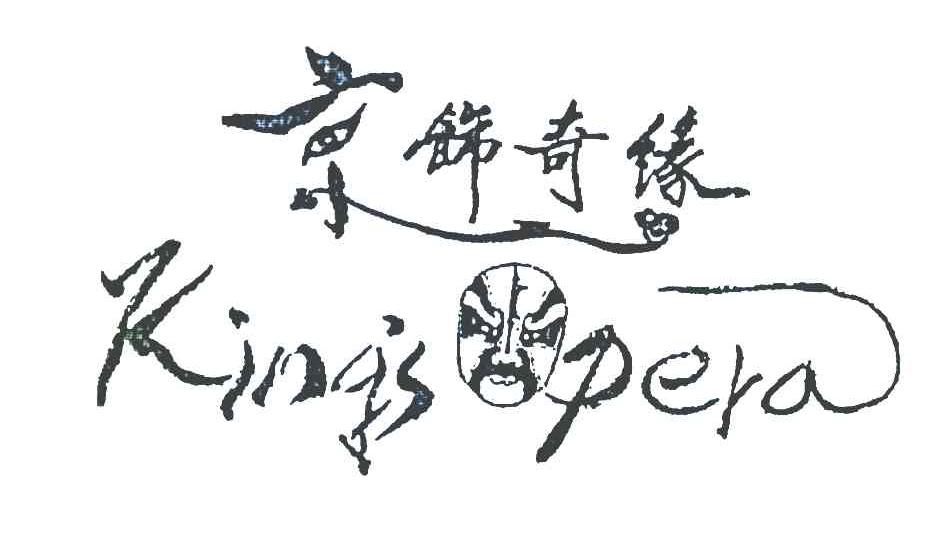 京飾奇缘
King's Opera